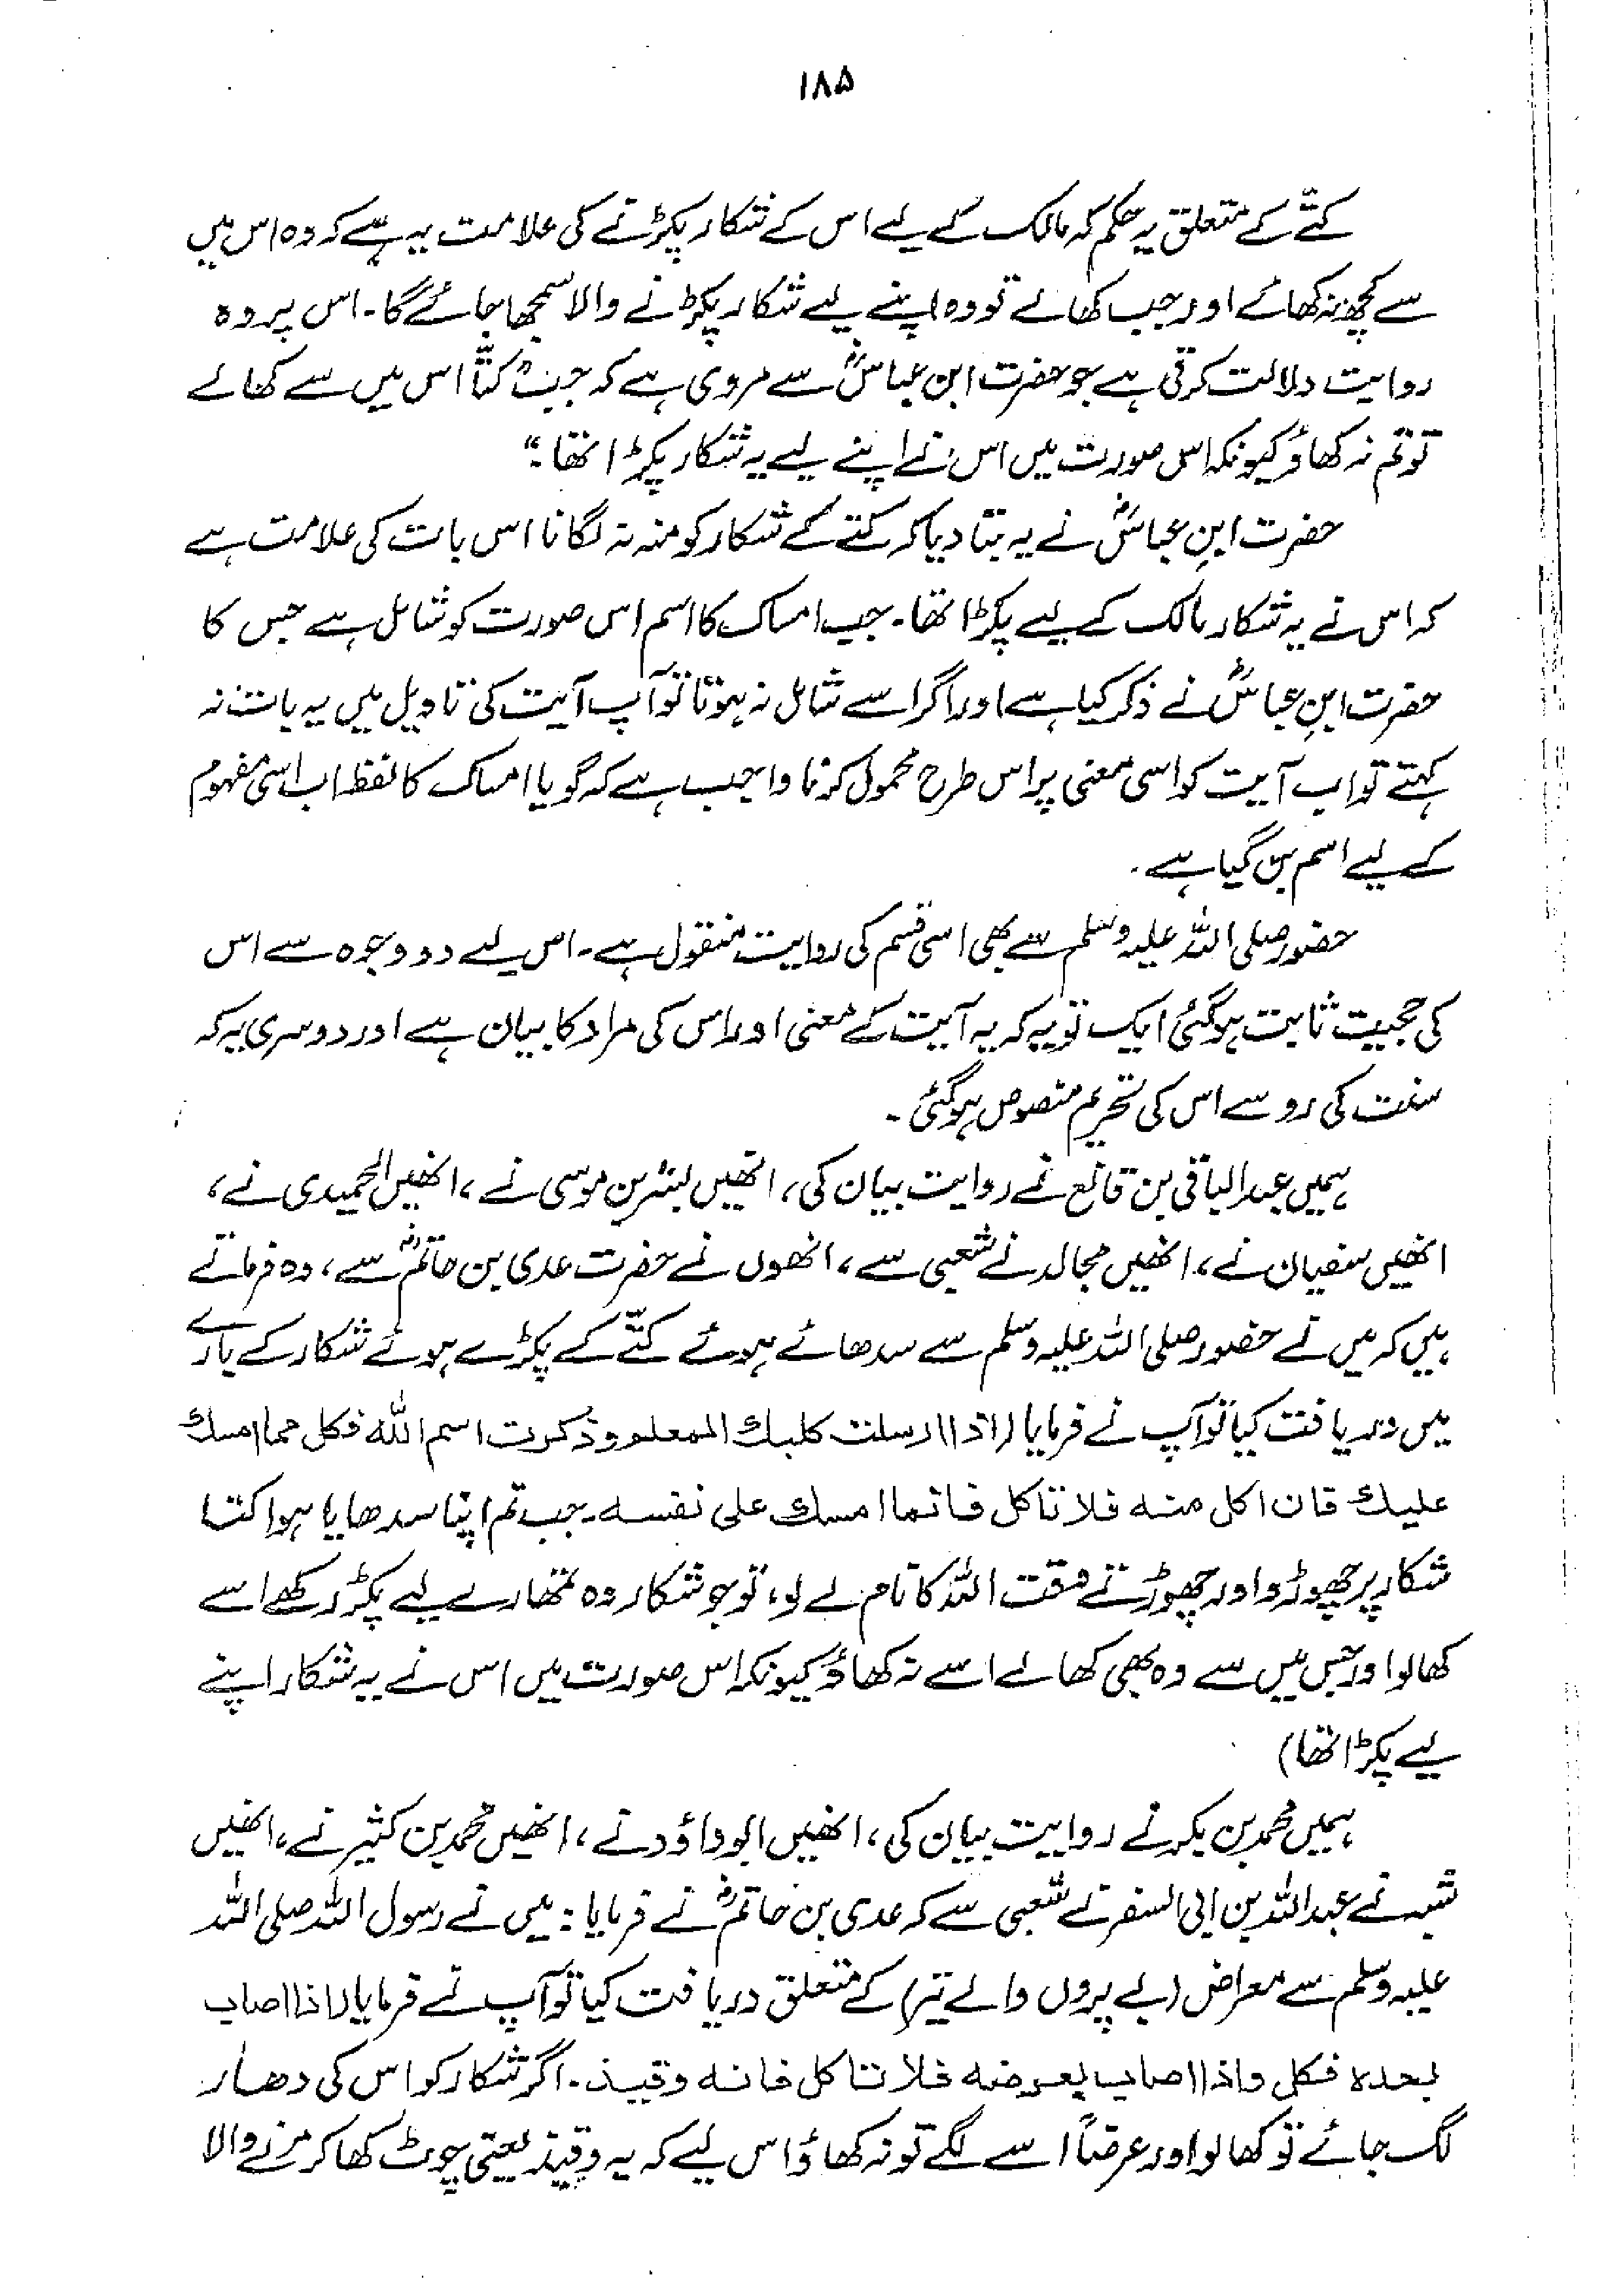 ۱۸۵
کتّے کے متعلق یہ حکم کہ مالک کے لیے اس کے شکار پکڑنے کی علامت یہ ہے کہ وہ اس میں
سے کچھ نہ کھائے اور جب کھالے تو وہ اپنے لیے شکار پکڑنے والا سمجھا جائے گا۔ اس پر وہ
روایت دلالت کرتی ہے جو حضرت ابن عباسؓ سے مروی ہے کہ جب کتّا اس میں سے کھالے
تو تم نہ کھاؤ کیونکہ اس صورت میں اس نے اپنے لیے یہ شکار پکڑا تھا۔“
حضرت ابنِ عباسؓ نے یہ بتا دیا کہ کتے کے شکار کو منہ نہ لگانا اس بات کی علامت ہے
کہ اس نے یہ شکار مالک کے لیے پکڑا تھا۔ جب امساک کا اسم اس صورت کو شامل ہے جس کا
حضرت ابنِ عباسؓ نے ذکر کیا ہے اور اگر اسے شامل نہ ہوتا تو آپ آیت کی تاویل میں یہ بات نہ
کہتے تو اب آیت کو اسی معنی پر اس طرح محمول کرنا واجب ہے کہ گویا امساک کا لفظ اب اسی مفہوم
کے لیے اسم بن گیا ہے۔
حضور صلی اللہ علیہ وسلم سے بھی اسی قسم کی روایت منقول ہے۔ اس لیے دو وجوہ سے اس
کی حجیت ثابت ہوگئی ایک تو یہ کہ یہ آیت کے معنی اور اس کی مراد کا بیان ہے اور دوسری یہ کہ
سنت کی رو سے اس کی تحریم منصوص ہوگئی۔
ہمیں عبدالباقی بن قانع نے روایت بیان کی، انھیں بشر بن موسی نے، انھیں الحمیدی نے،
انھیں سفیان نے، انھیں مجالد نے شعبی سے، انھوں نے حضرت عدی بن حاتمؓ سے، وہ فرماتے
ہیں کہ میں نے حضور صلی اللہ علیہ وسلم سے سدھائے ہوئے کتّے کے پکڑے ہوئے شکار کے بارے
میں دریافت کیا تو آپ نے فرمایا (اذا ارسلت کلبک المعلم وذکرت اسم اللہ فکل مما امسک
علیک فان اکل منہ فلا تاکل فانما امسک علی نفسہ۔ جب تم اپنا سدھایا ہوا کتا
شکار پر چھوڑو اور چھوڑتے وقت اللہ کا نام لے لو، تو جو شکار وہ تمھارے لیے پکڑ رکھے اسے
کھالو اور جس میں سے وہ بھی کھالے اسے نہ کھاؤ کیونکہ اس صورت میں اس نے یہ شکار اپنے
لیے پکڑا تھا)
ہمیں محمد بن بکر نے روایت بیان کی، انھیں ابو داؤد نے، انھیں محمد بن کثیر نے، انھیں
شعبہ نے عبداللہ بن ابی السفر نے شعبی سے کہ عدی بن حاتمؓ نے فرمایا: میں نے رسول اللہ صلی اللہ
علیہ وسلم سے معراض (بے پروں والے تیر) کے متعلق دریافت کیا تو آپ نے فرمایا (اذا اصاب
بحدہ فکل واذا اصاب بعرضہ فلا تاکل فانہ وقیذ۔ اگر شکار کو اس کی دھار
لگ جائے تو کھالو اور عرضاً اسے لگے تو نہ کھاؤ اس لیے کہ یہ وقیذ یعنی چوٹ کھا کر مرنے والا